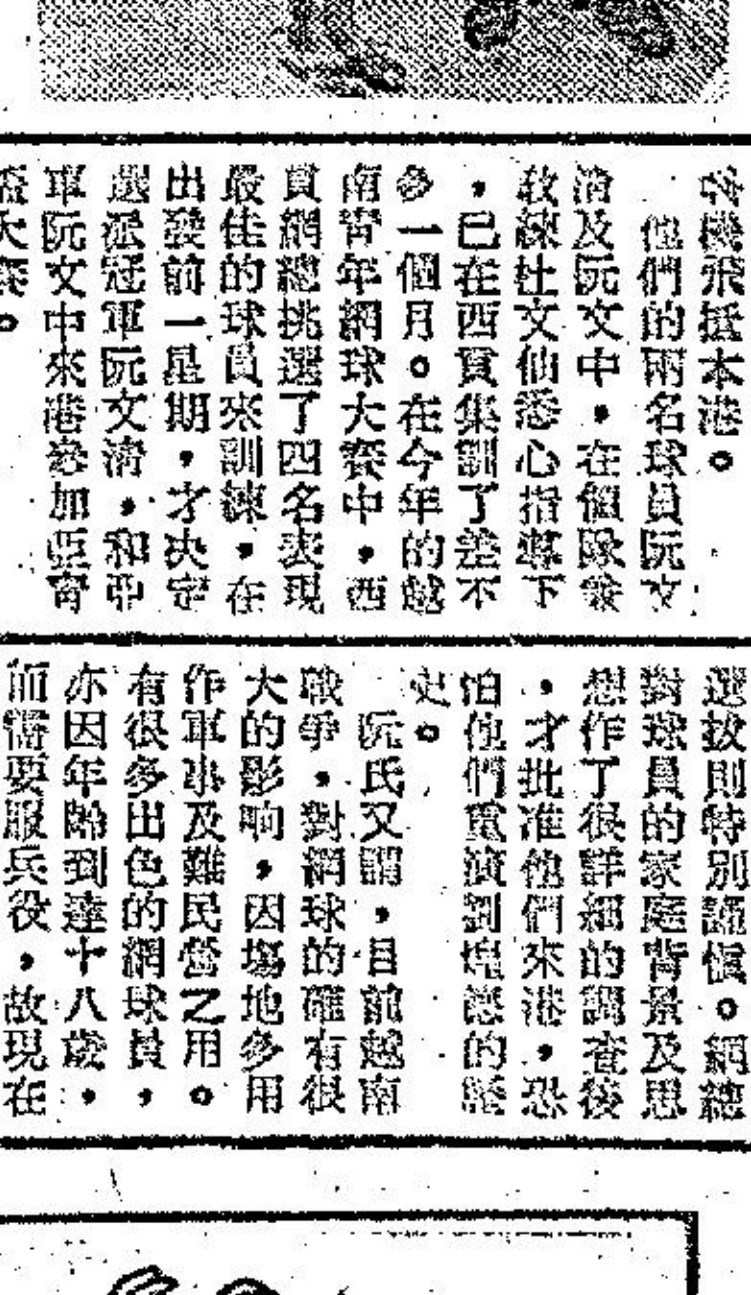 客機飛抵本港。
他們的兩名球員阮文
清及阮文中,在個隊兼
教練杜文仙悉心指導下
,已在西貢集訓了差不
多一個月。在今年的越
南青年網球大賽中,西
貢網總挑選了四名表現
最佳的球員來訓練,在
出發前一星期,才決定
選派冠軍阮文清,和亞
軍阮文中來港參加亞青
盃大賽。
選拔則特別謹慎。網總
對球員的家庭背景及思
想作了很詳細的調查後
,才批准他們來港,恐
怕他們重演劉焜悠的歷
史。
阮氏又謂,目前越南
戰爭,對網球的確有很
大的影响,因場地多用
作軍事及難民營之用。
有很多出色的網球員,
亦因年齡到達十八歲,
而需要服兵役,故現在